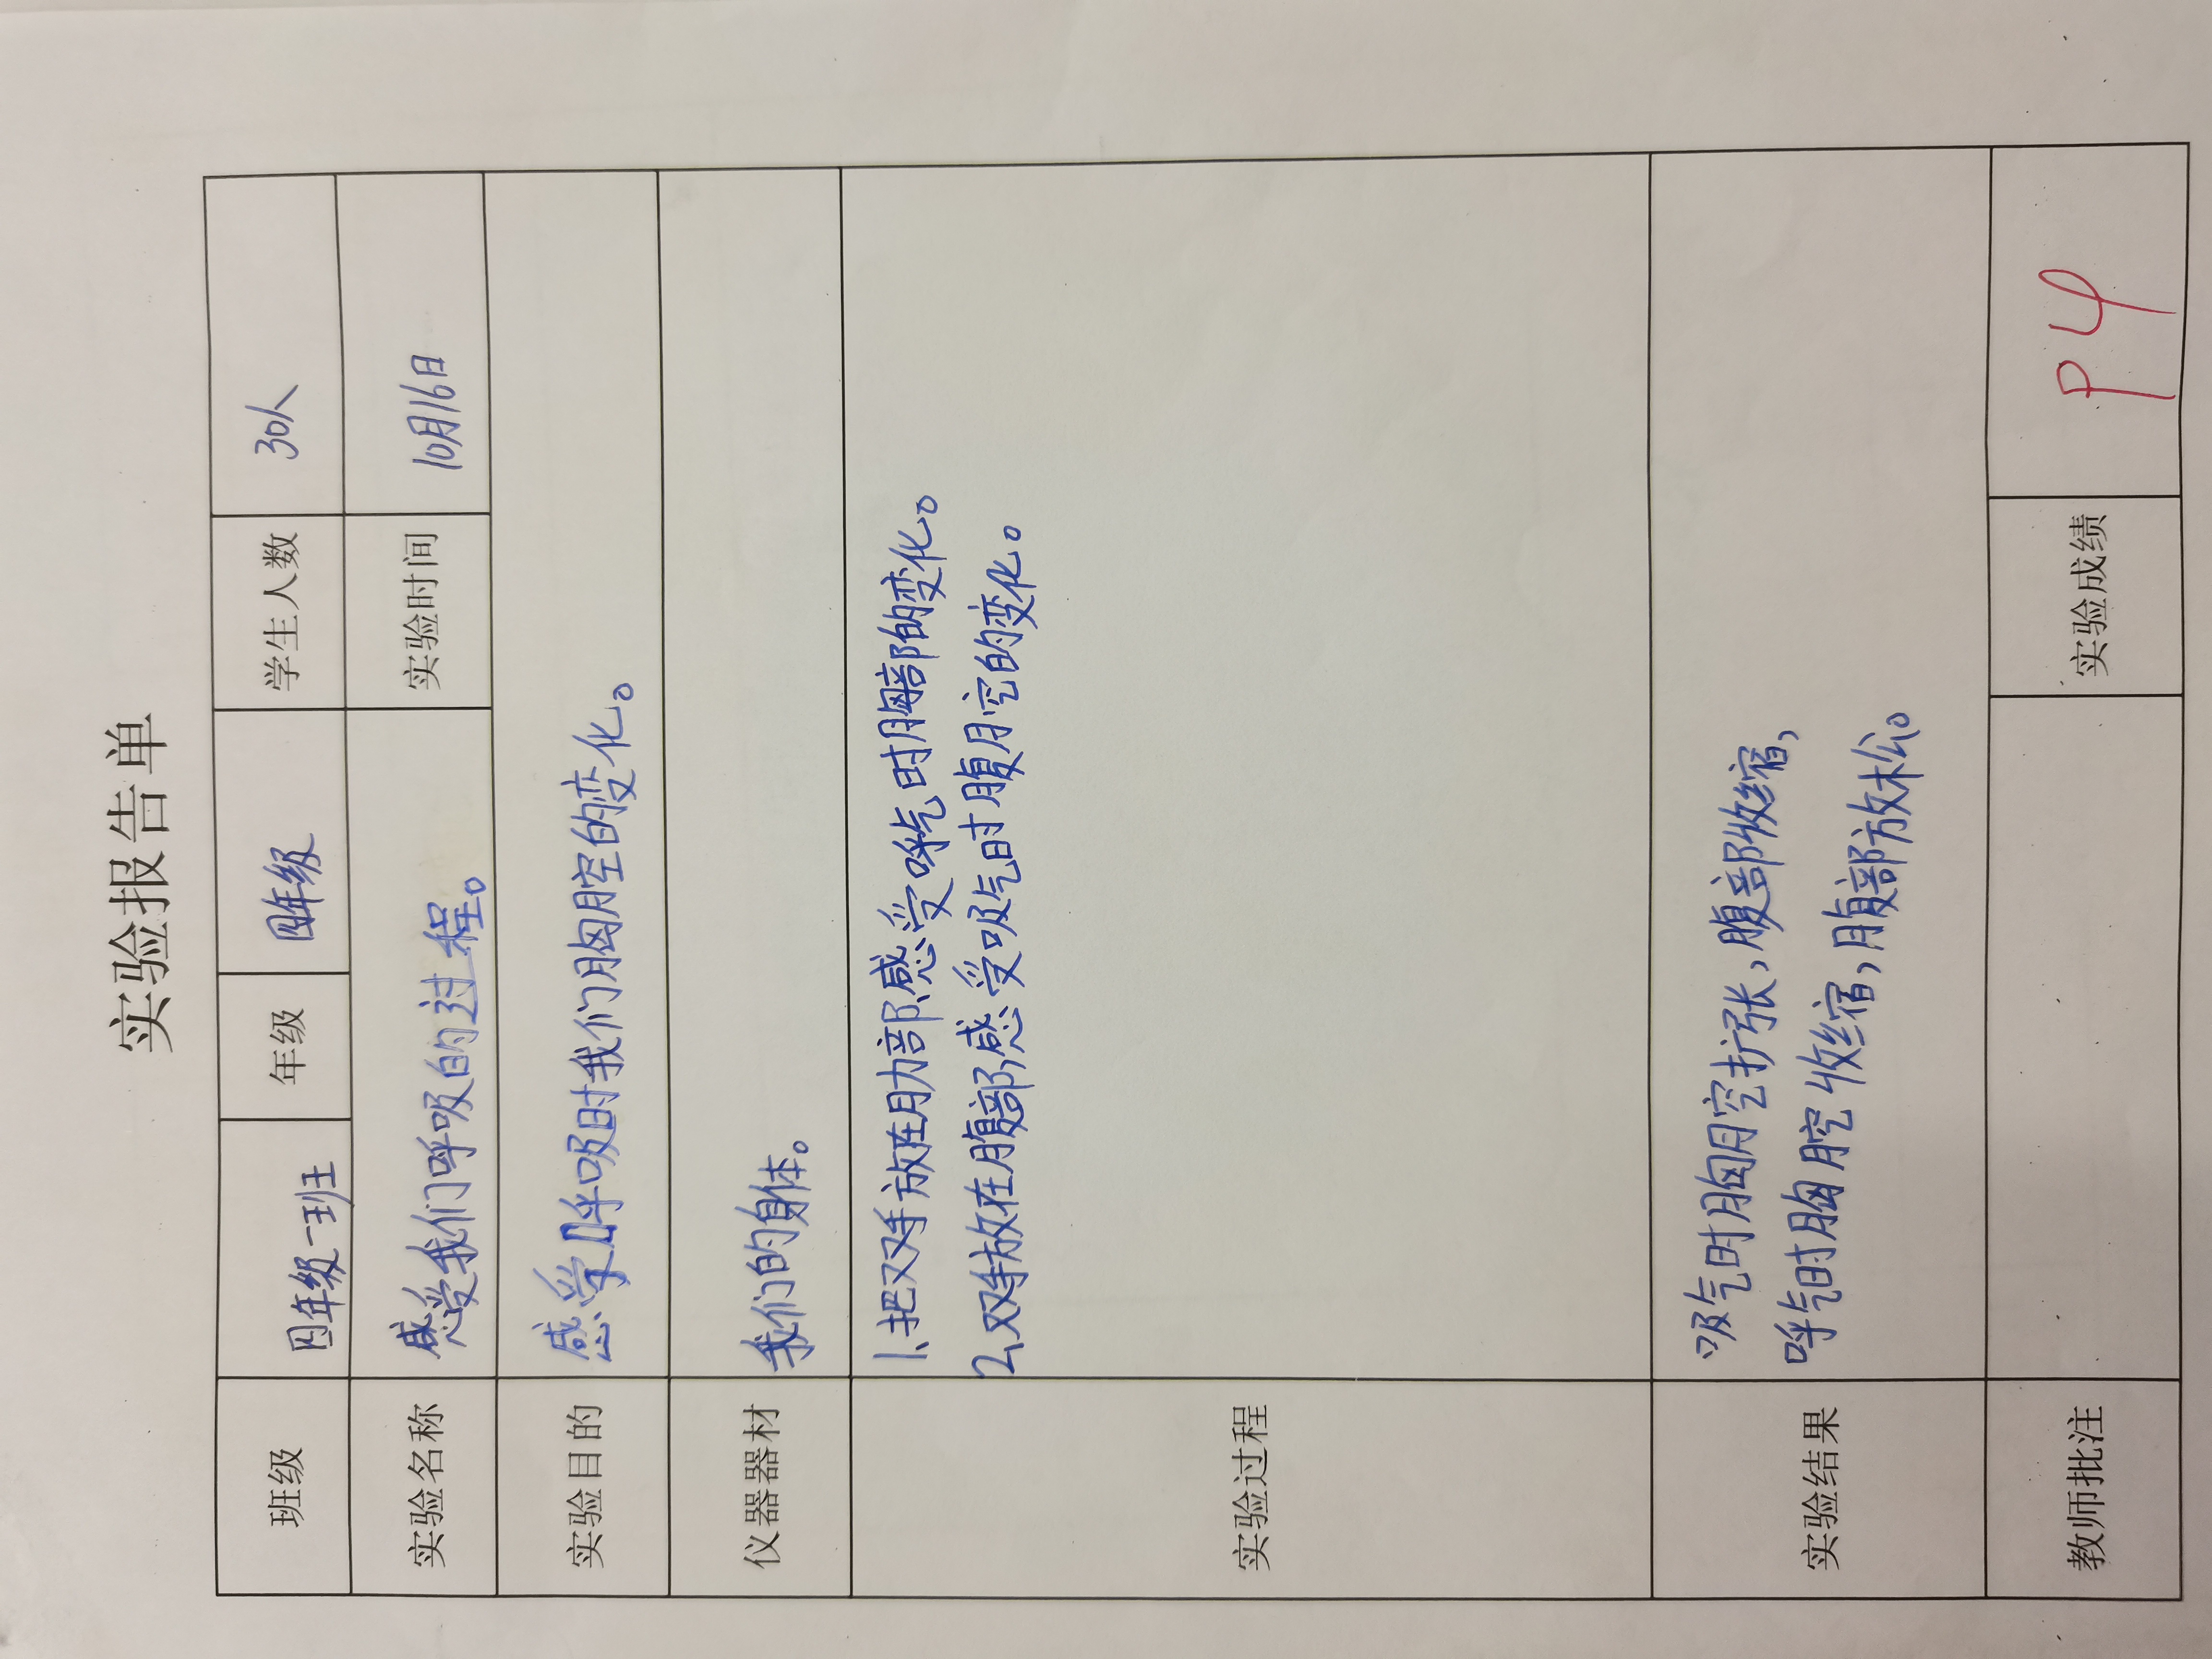 实验报告单
班级 四年级一班 年级 四年级 学生人数 30人
实验名称 感受我们呼吸的过程。 实验时间 10月16日
实验目的 感受呼吸时我们胸腔的变化。
仪器器材 我们的身体。
实验过程
1、把双手放在肋部,感受呼气时胸部的变化。
2、双手放在腹部,感受吸气时腹腔的变化。
实验结果
吸气时胸腔扩张,腹部收缩,
呼气时胸腔收缩,腹部放松。
教师批注 实验成绩 P4